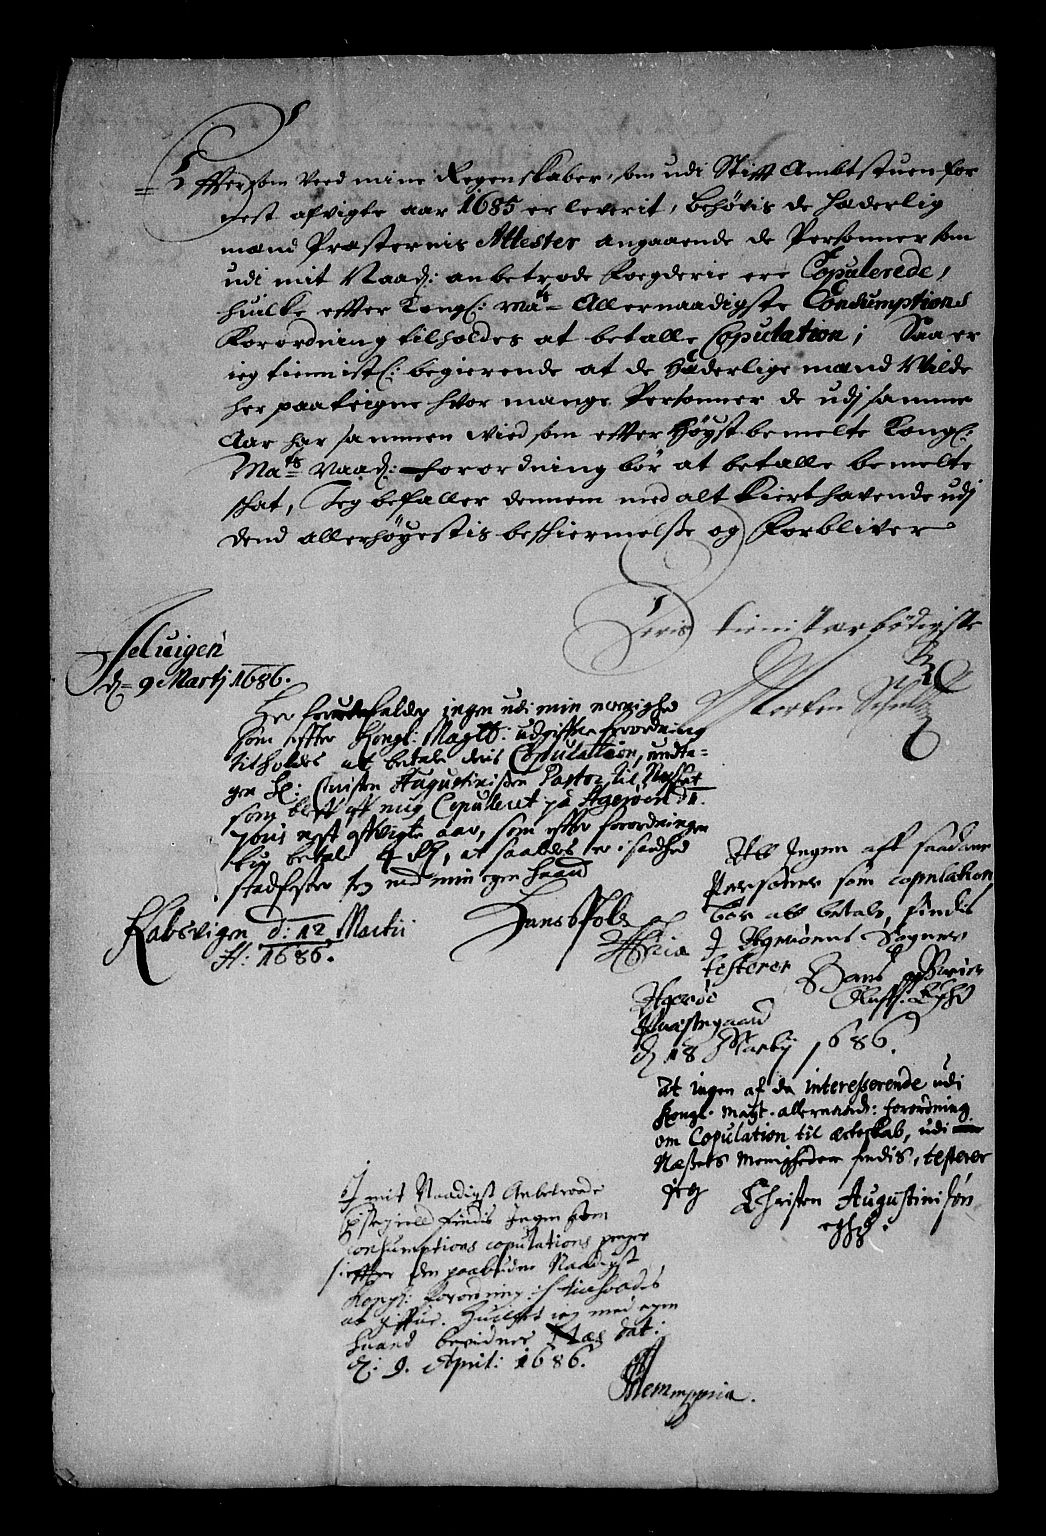 Effter som veed mine Regenskaber, som udi Stifft Ambtstuen for
nest afvigte aar 1685 er leverit, behøvis de hæderlig
mænd Præsternis Attester angaaende de Personner som
udi mit Naad: anbetrode Foegderie ere Copulerede,
huilke effter Kongl: Mats Allernaadigste Consumptions
Forordning tilholdes at betalle Copulation; Saa er
ieg tienistl: begierende at de Hæderlige mænd Wilde
her paateigne hvor mange Personner de udj samme
Aar har sammen wied som effter Høyst bemelte Kongl:
Mats Naad: forordning bør at betalle bemelte
skat, Jeg befaller dennem med alt kiert hafvende udj
dend allerhøyestis beskiermelsse og Forbliver
Deris tienistærbødigste
Morten
Feluigen
d 9 Martj 1686.
Her forudefalder ingen udi min menighed
som efter Kongl: Maytt: udgifne forordning
tilholdes at betale deris Copulation, undta-
gen Hr: Christen Augustinisøn Pastor til Næsset
som blef af mig Copuleret på Agerøen d 11.
7bris nest afvigte aar, som efter forordningen
bør betale 4 Rd, at saaledes er i sandhed
stadfester jeg med min egen haand
Rabsvigen d: 12 Martii
A: 1686.
Hans
Att Ingen aff saadane
Personer som copulation
bør att betale, findis
J Agerøens Sogner
testerer Hans
Agerøe
Præstegaard
d 18 Martij 1686.
At ingen af de interesserende udi
Kongl. Mayt. allernaads: forordning
om Copulation til ecteskab, udi
Næssets Menigheder findis, testerer
jeg Christen Augustinisøn
egh:
J mit Naadigst Anbetroede
findis Ingen som
consumptions copulations penge
effter den paabudne Naadigst
Kongl: forordning tilholdes
at giffue. Huilchet ieg med egen
haand bevidner Næs dat:
d: 9. April: 1686.